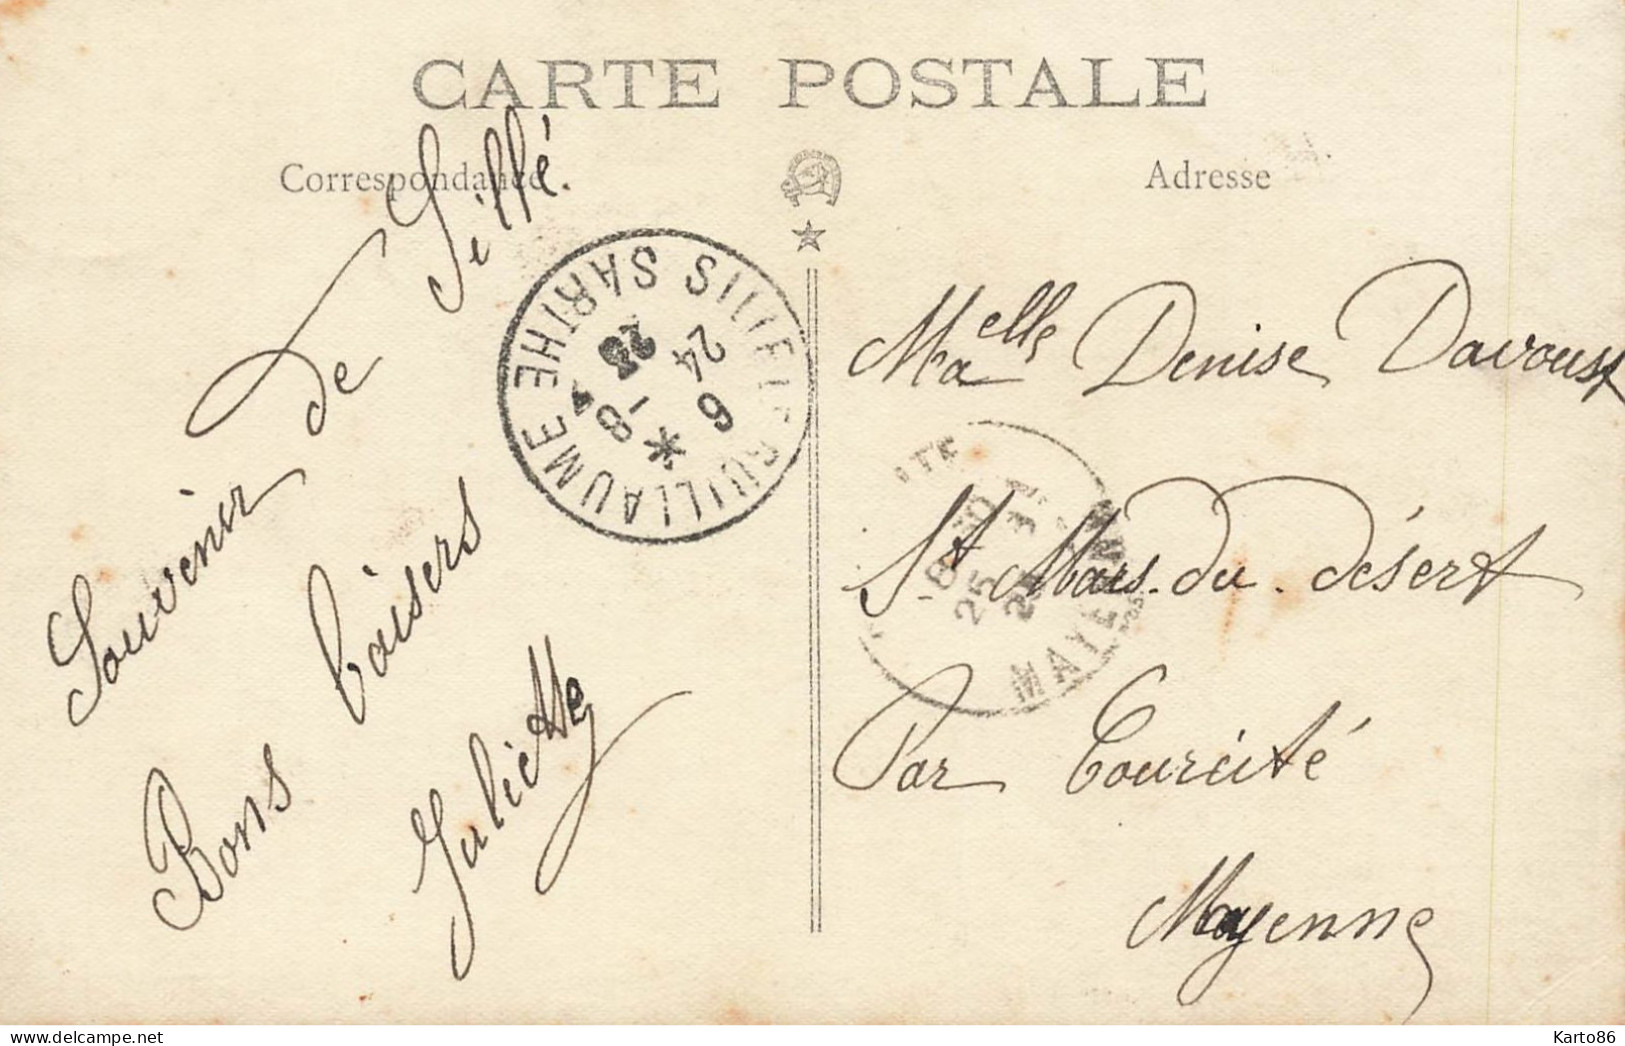 CARTE POSTALE
Correspondance.
Adresse
Souvenir de Sillé
Bons baisers
Juliette
SILLE GUILLAUME SARTHE
24
6 - 8
23
Maelle Denise Davoust
St Mars. du. désert
Par Courcité
Mayenne
25
MAYENNE
delcampe.net
Karto86